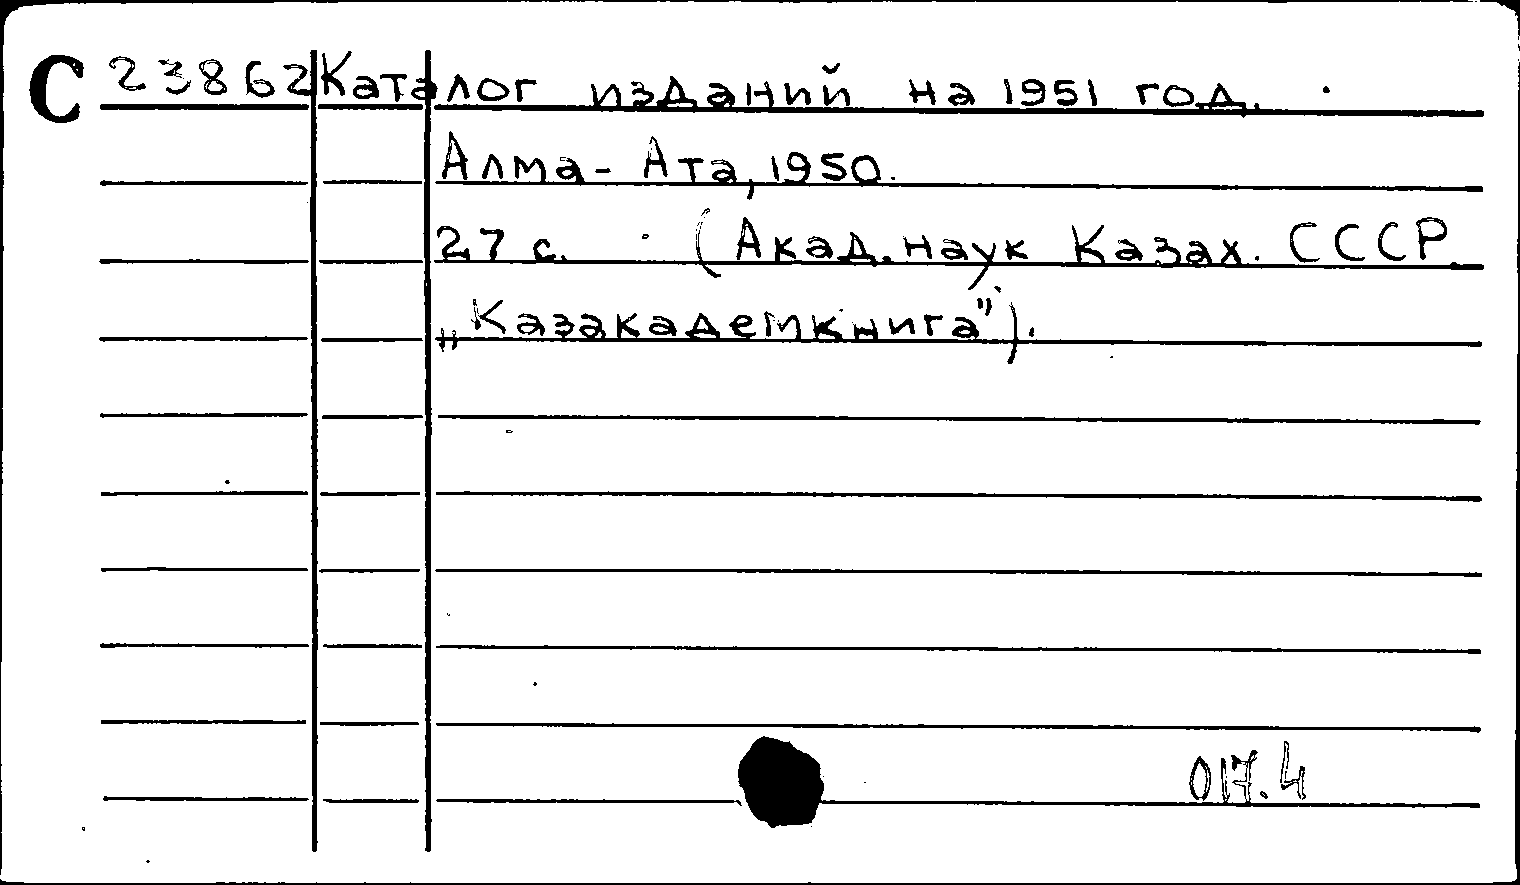 С 23862 Каталог изданий на 1951 год.
Алма-Ата, 1950.
27 с. (Акад. наук Казах. СССР.
„Казакадемкнига").
017.4